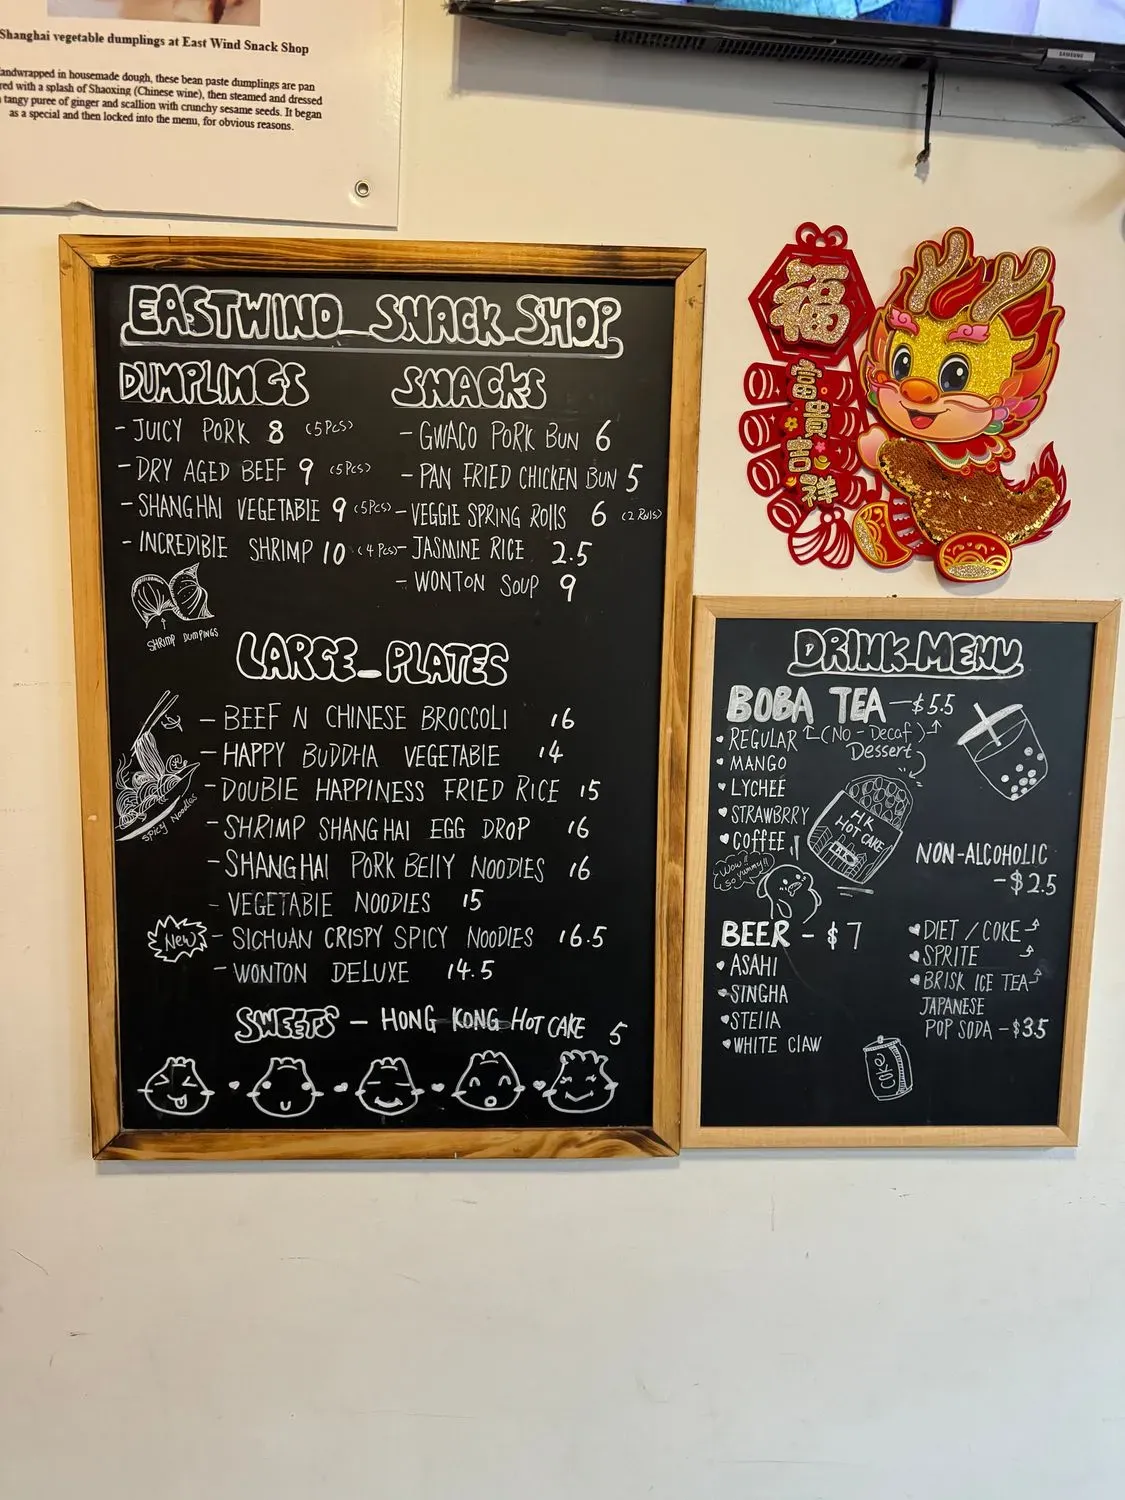 Shanghai vegetable dumplings at East Wind Snack Shop
andwrapped in housemade dough, these bean paste dumplings are pan
red with a splash of Shaoxing (Chinese wine), then steamed and dressed
tangy puree of ginger and scallion with crunchy sesame seeds. It began
as a special and then locked into the menu, for obvious reasons.
SAMSUNG
福
富貴吉祥
EASTWIND SNACK SHOP
DUMPLINGS
- JUICY PORK 8 (5Pcs)
- DRY AGED BEEF 9 (5Pcs)
- SHANGHAI VEGETABLE 9 (5Pcs)
- INCREDIBLE SHRIMP 10 (4Pcs)
SHRIMP DUMPINGS
SNACKS
- GWACO PORK BUN 6
- PAN FRIED CHICKEN BUN 5
- VEGGIE SPRING ROLLS 6 (2 Rolls)
- JASMINE RICE 2.5
- WONTON SOUP 9
LARGE_PLATES
- BEEF N CHINESE BROCCOLI 16
- HAPPY BUDDHA VEGETABLE 14
- DOUBLE HAPPINESS FRIED RICE 15
- SHRIMP SHANGHAI EGG DROP 16
- SHANGHAI PORK BELLY NOODLES 16
- VEGETABLE NOODLES 15
New - SICHUAN CRISPY SPICY NOODLES 16.5
- WONTON DELUXE 14.5
Spicy Noodles
SWEETS - HONG KONG HOT CAKE 5
DRINK MENU
BOBA TEA - $5.5
(No - Decaf)
REGULAR
MANGO
LYCHEE
STRAWBRRY
COFFEE
Dessert
HK
HOT CAKE
Wow!!
so yummy!!
BEER - $7
ASAHI
SINGHA
STELLA
WHITE CLAW
NON-ALCOHOLIC
- $2.5
DIET / COKE
SPRITE
BRISK ICE TEA
JAPANESE
POP SODA - $3.5
COKE